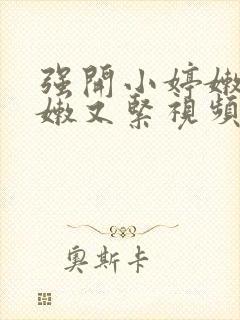 强開小婷嫩
嫩又緊視頻
奧斯卡